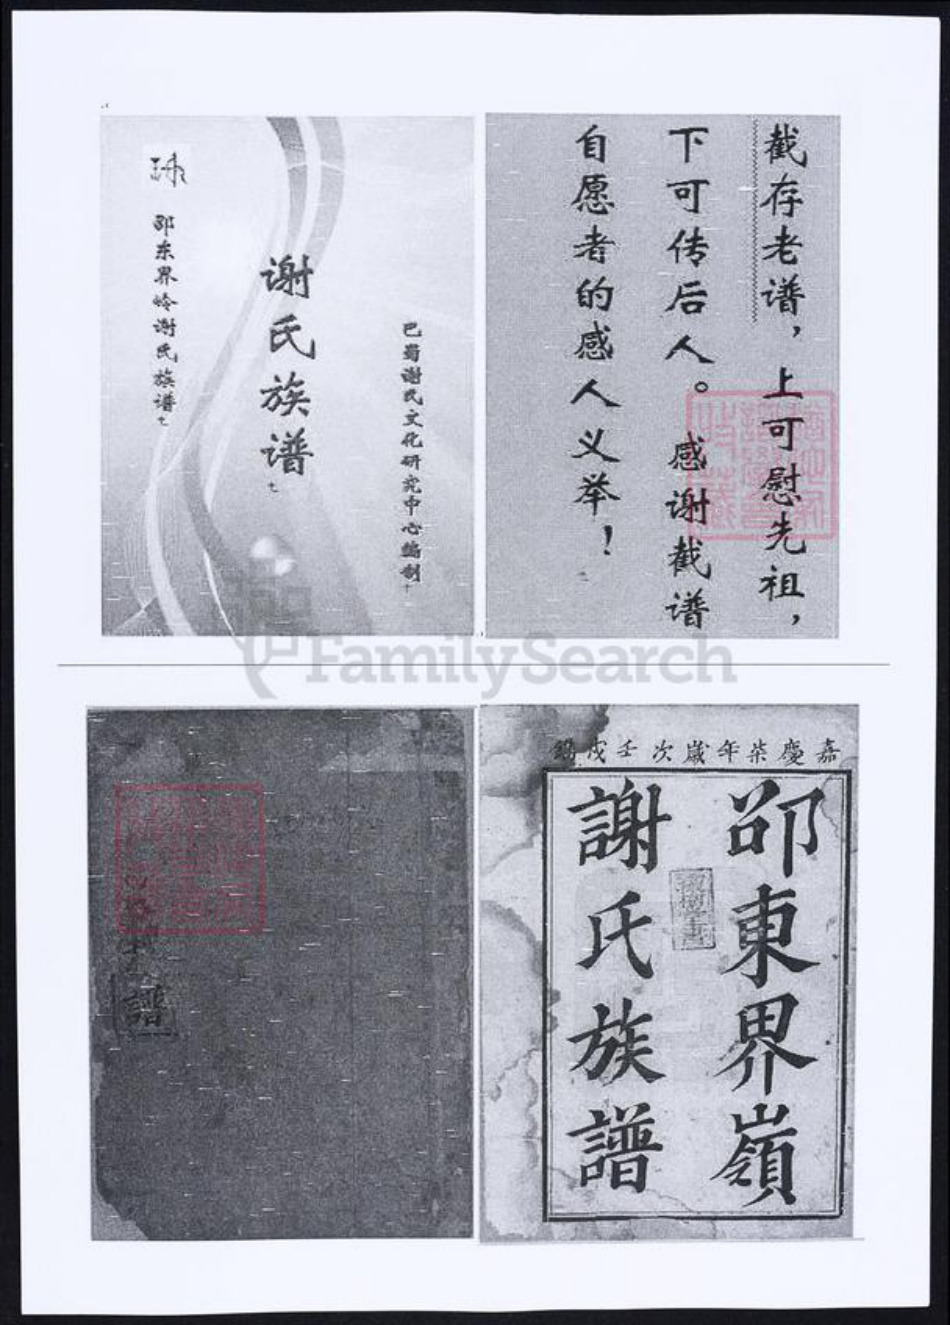 邵东界岭谢氏族谱
谢氏族谱
巴蜀谢氏文化研究中心编制
截存老谱，上可慰先祖，
下可传后人。感谢截谱
自愿者的感人义举！
FamilySearch
譜
嘉慶柒年歲次壬戌
邵東界嶺
謝氏族譜